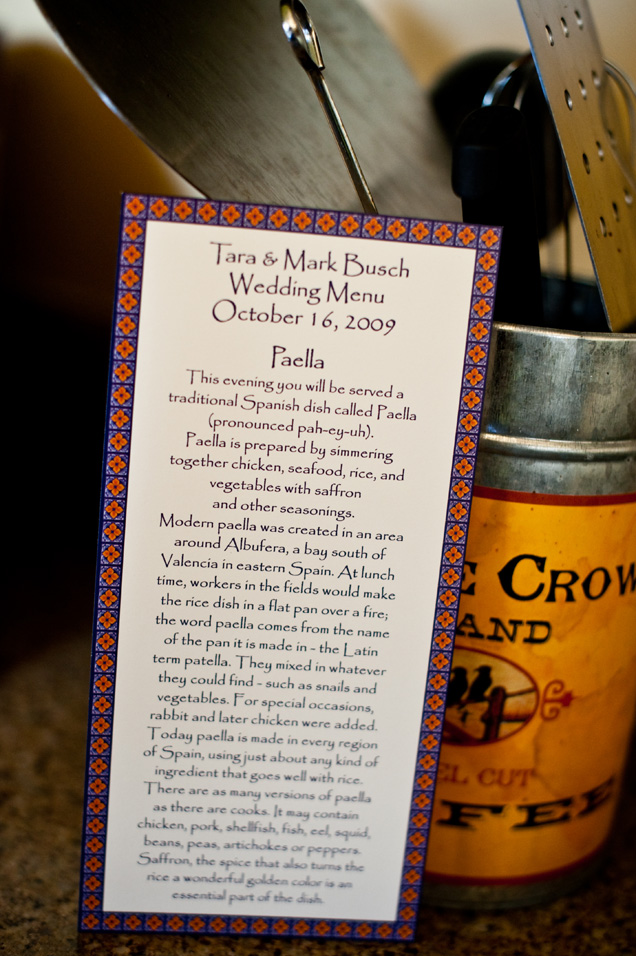 Tara & Mark Busch
Wedding Menu
October 16, 2009
Paella
This evening you will be served a
traditional Spanish dish called Paella
(pronounced pah-ey-uh).
Paella is prepared by simmering
together chicken, seafood, rice, and
vegetables with saffron
and other seasonings.
Modern paella was created in an area
around Albufera, a bay south of
Valencia in eastern Spain. At lunch
time, workers in the fields would make
the rice dish in a flat pan over a fire;
the word paella comes from the name
of the pan it is made in - the Latin
term patella. They mixed in whatever
they could find - such as snails and
vegetables. For special occasions,
rabbit and later chicken were added.
Today paella is made in every region
of Spain, using just about any kind of
ingredient that goes well with rice.
There are as many versions of paella
as there are cooks. It may contain
chicken, pork, shellfish, fish, eel, squid,
beans, peas, artichokes or peppers.
Saffron, the spice that also turns the
rice a wonderful golden color is an
essential part of the dish.
E CROW
AND
EL CUT
FFEE